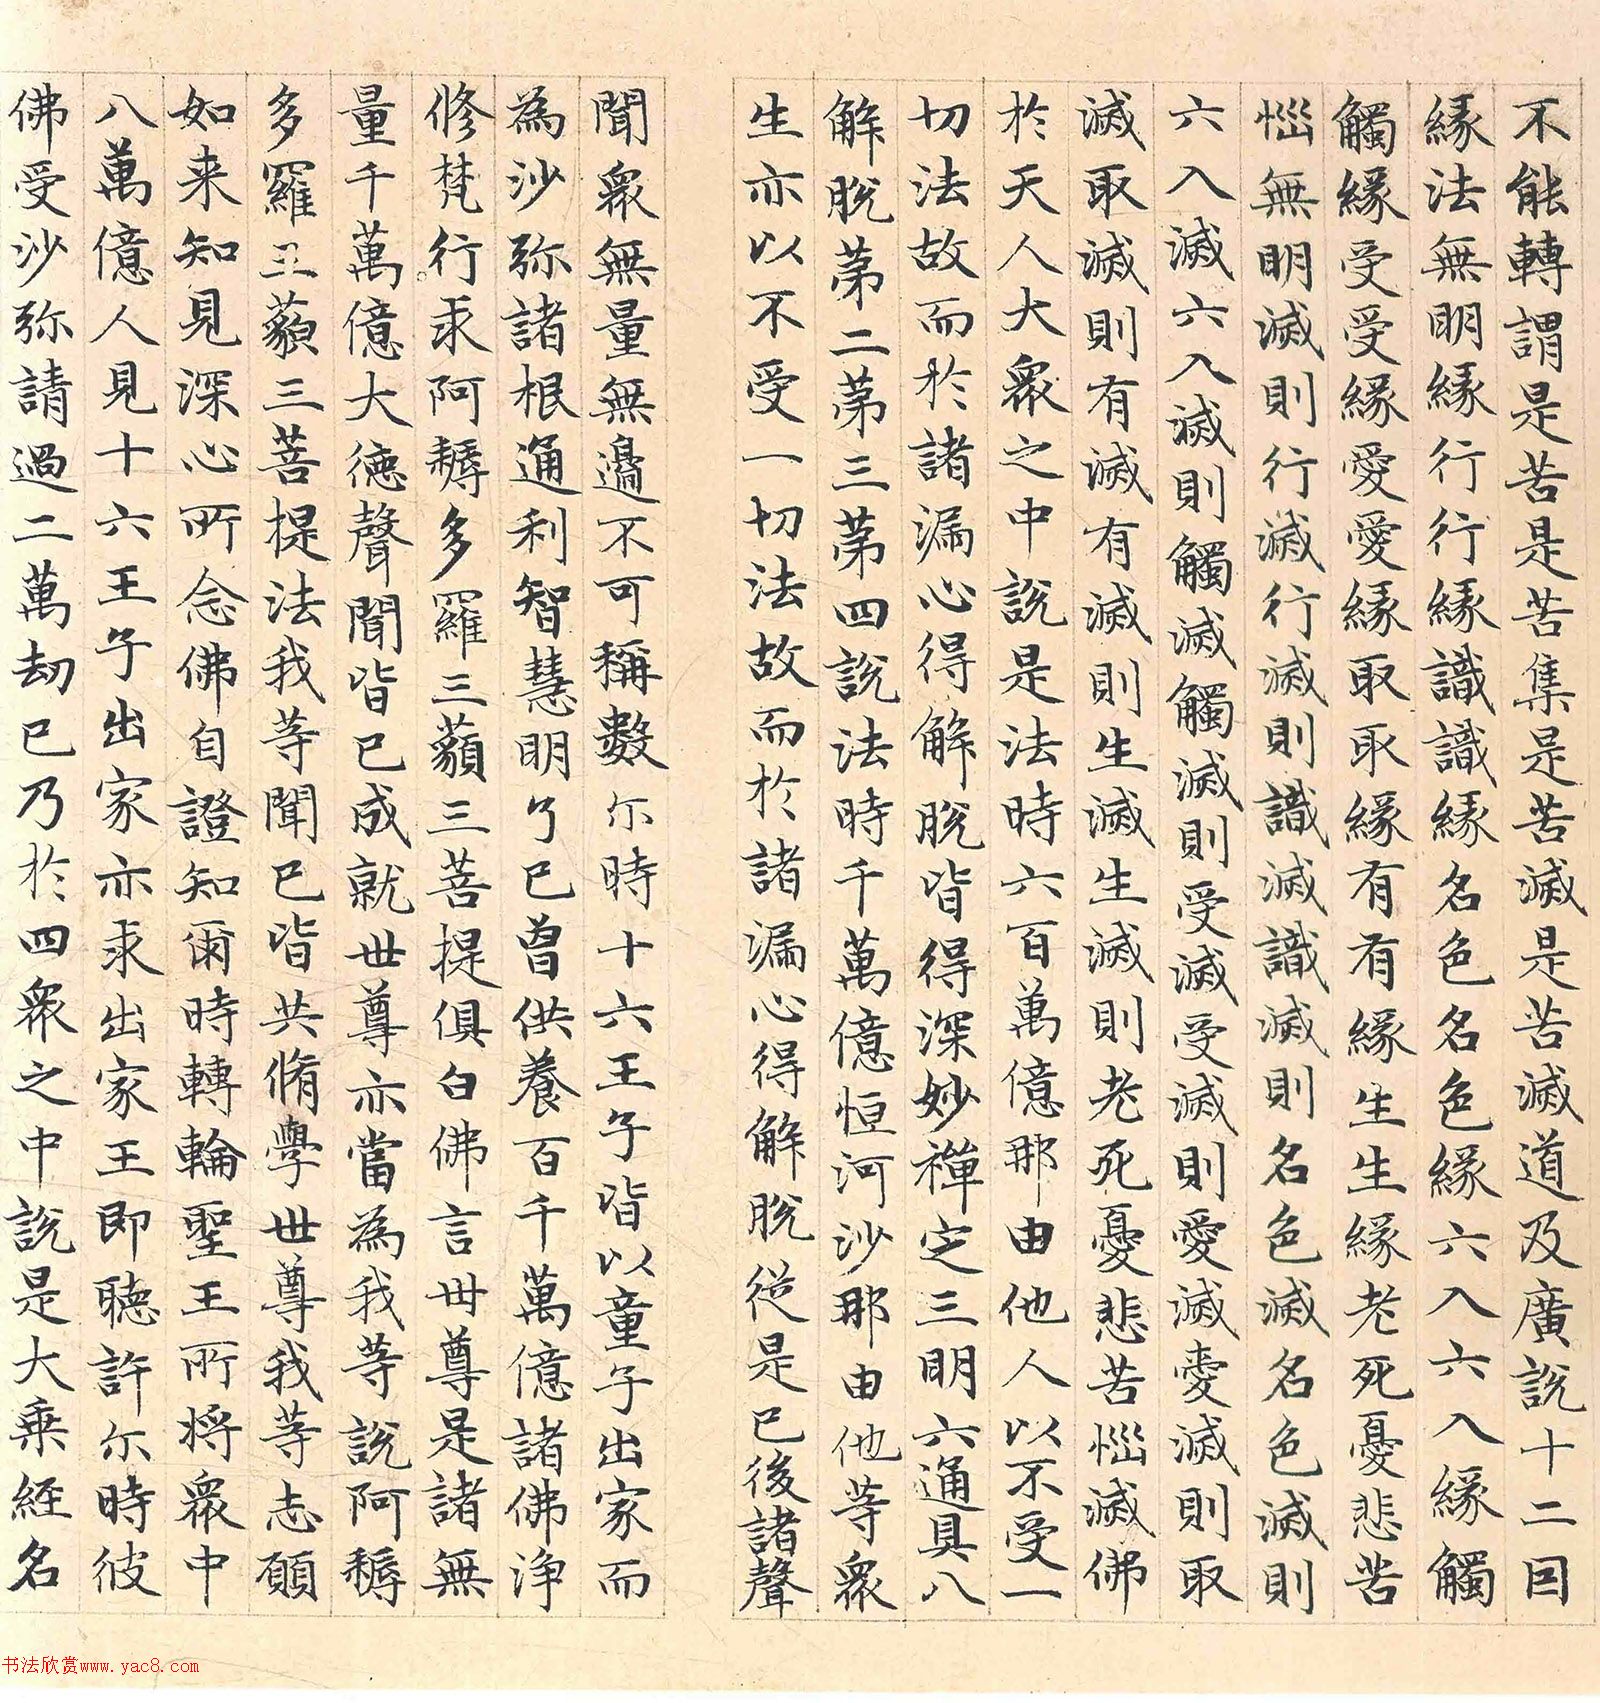 不能轉謂是苦是苦集是苦滅是苦滅道及廣說十二因
緣法無明緣行行緣識識緣名色名色緣六入六入緣觸
觸緣受受緣愛愛緣取取緣有有緣生生緣老死憂悲苦
惱無明滅則行滅行滅則識滅識滅則名色滅名色滅則
六入滅六入滅則觸滅觸滅則受滅受滅則愛滅愛滅則取
滅取滅則有滅有滅則生滅生滅則老死憂悲苦惱滅佛
於天人大眾之中說是法時六百萬億那由他人以不受一
切法故而於諸漏心得解脫皆得深妙禪定三明六通具八
解脫第二第三第四說法時千萬億恒河沙那由他等眾
生亦以不受一切法故而於諸漏心得解脫從是已後諸聲
聞眾無量無邊不可稱數尒時十六王子皆以童子出家而
為沙弥諸根通利智慧明了已曾供養百千萬億諸佛淨
修梵行求阿耨多羅三藐三菩提俱白佛言世尊是諸無
量千萬億大德聲聞皆已成就世尊亦當為我等說阿耨
多羅三藐三菩提法我等聞已皆共脩學世尊我等志願
如来知見深心所念佛自證知爾時轉輪聖王所將眾中
八萬億人見十六王子出家亦求出家王即聽許尒時彼
佛受沙弥請過二萬劫已乃於四眾之中說是大乘經名
书法欣赏www.yac8.com